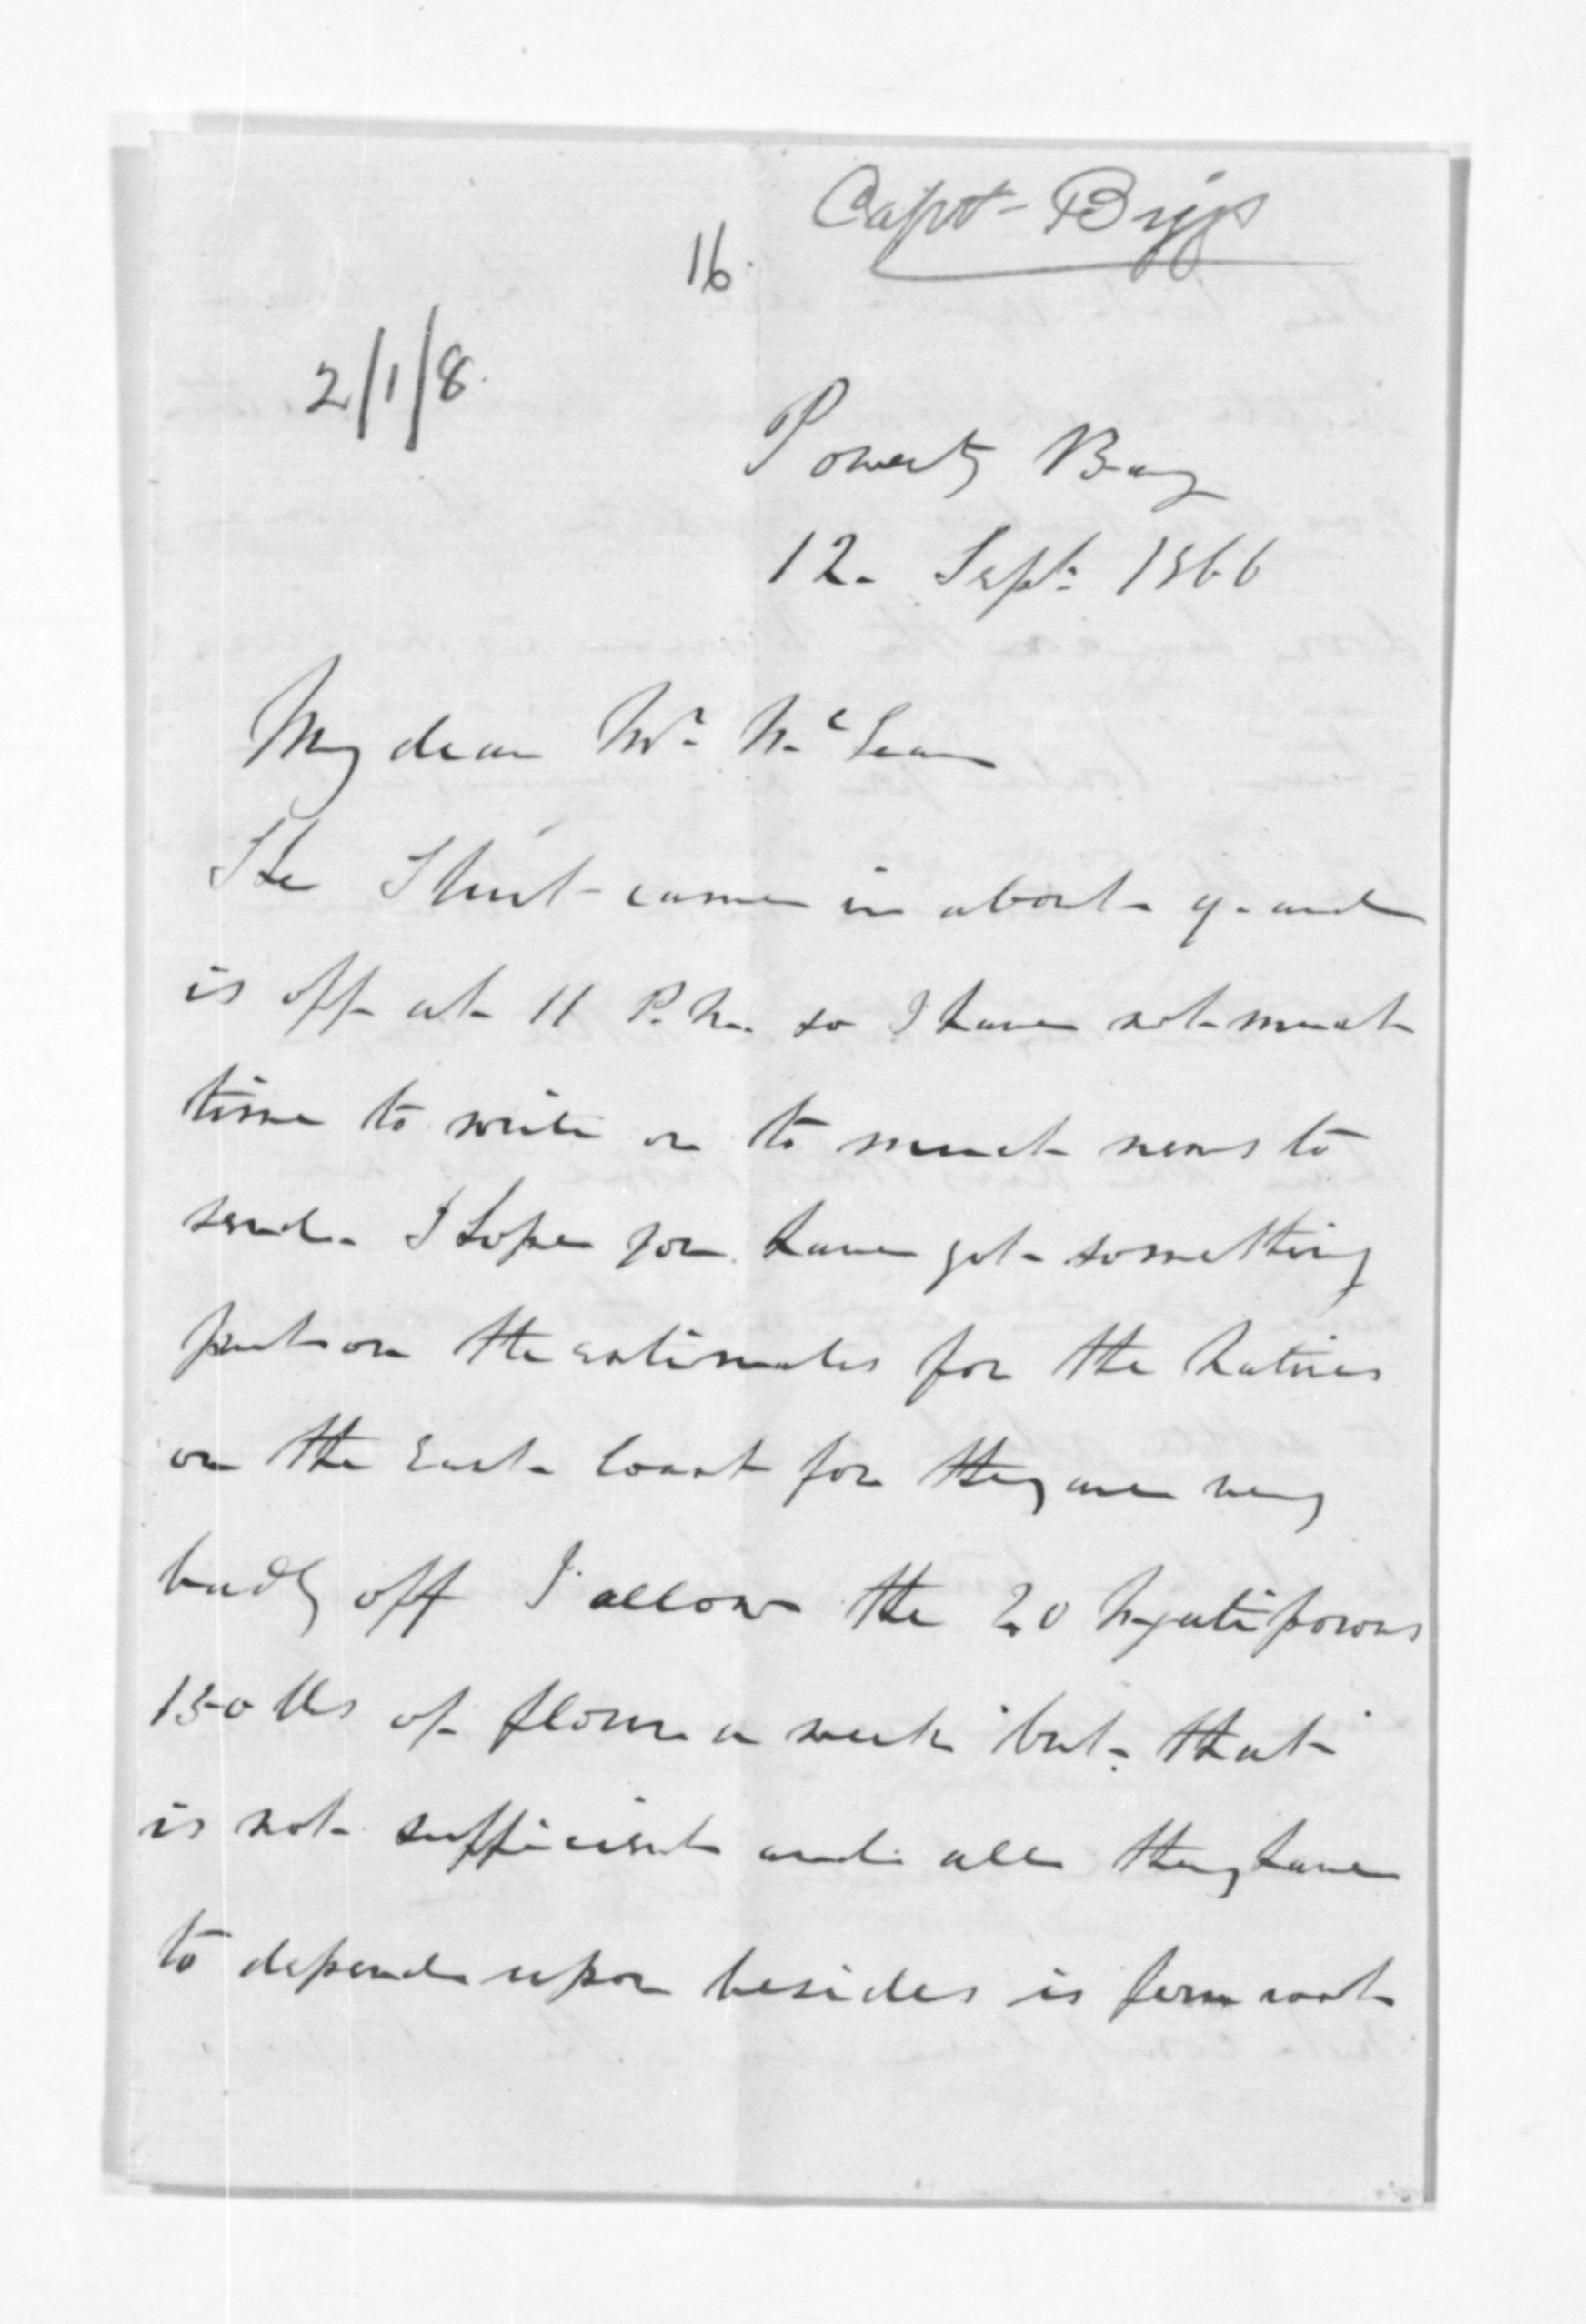 Capt. Biggs
16.
2/1/8.
Poverty Bay
12. Sept. 1866
My dear Mr. McLean
The Sturt came in about 9. and
is off at 11 P.M. so I have not much
time to write or to much news to
send. I hope you have got something
put on the estimates for the Natives
on the East Coast for they are very
badly off I allow the 20 Ngatiporous
150 lbs of flour a week but that
is not sufficient and all they have
to depend upon besides is fern root